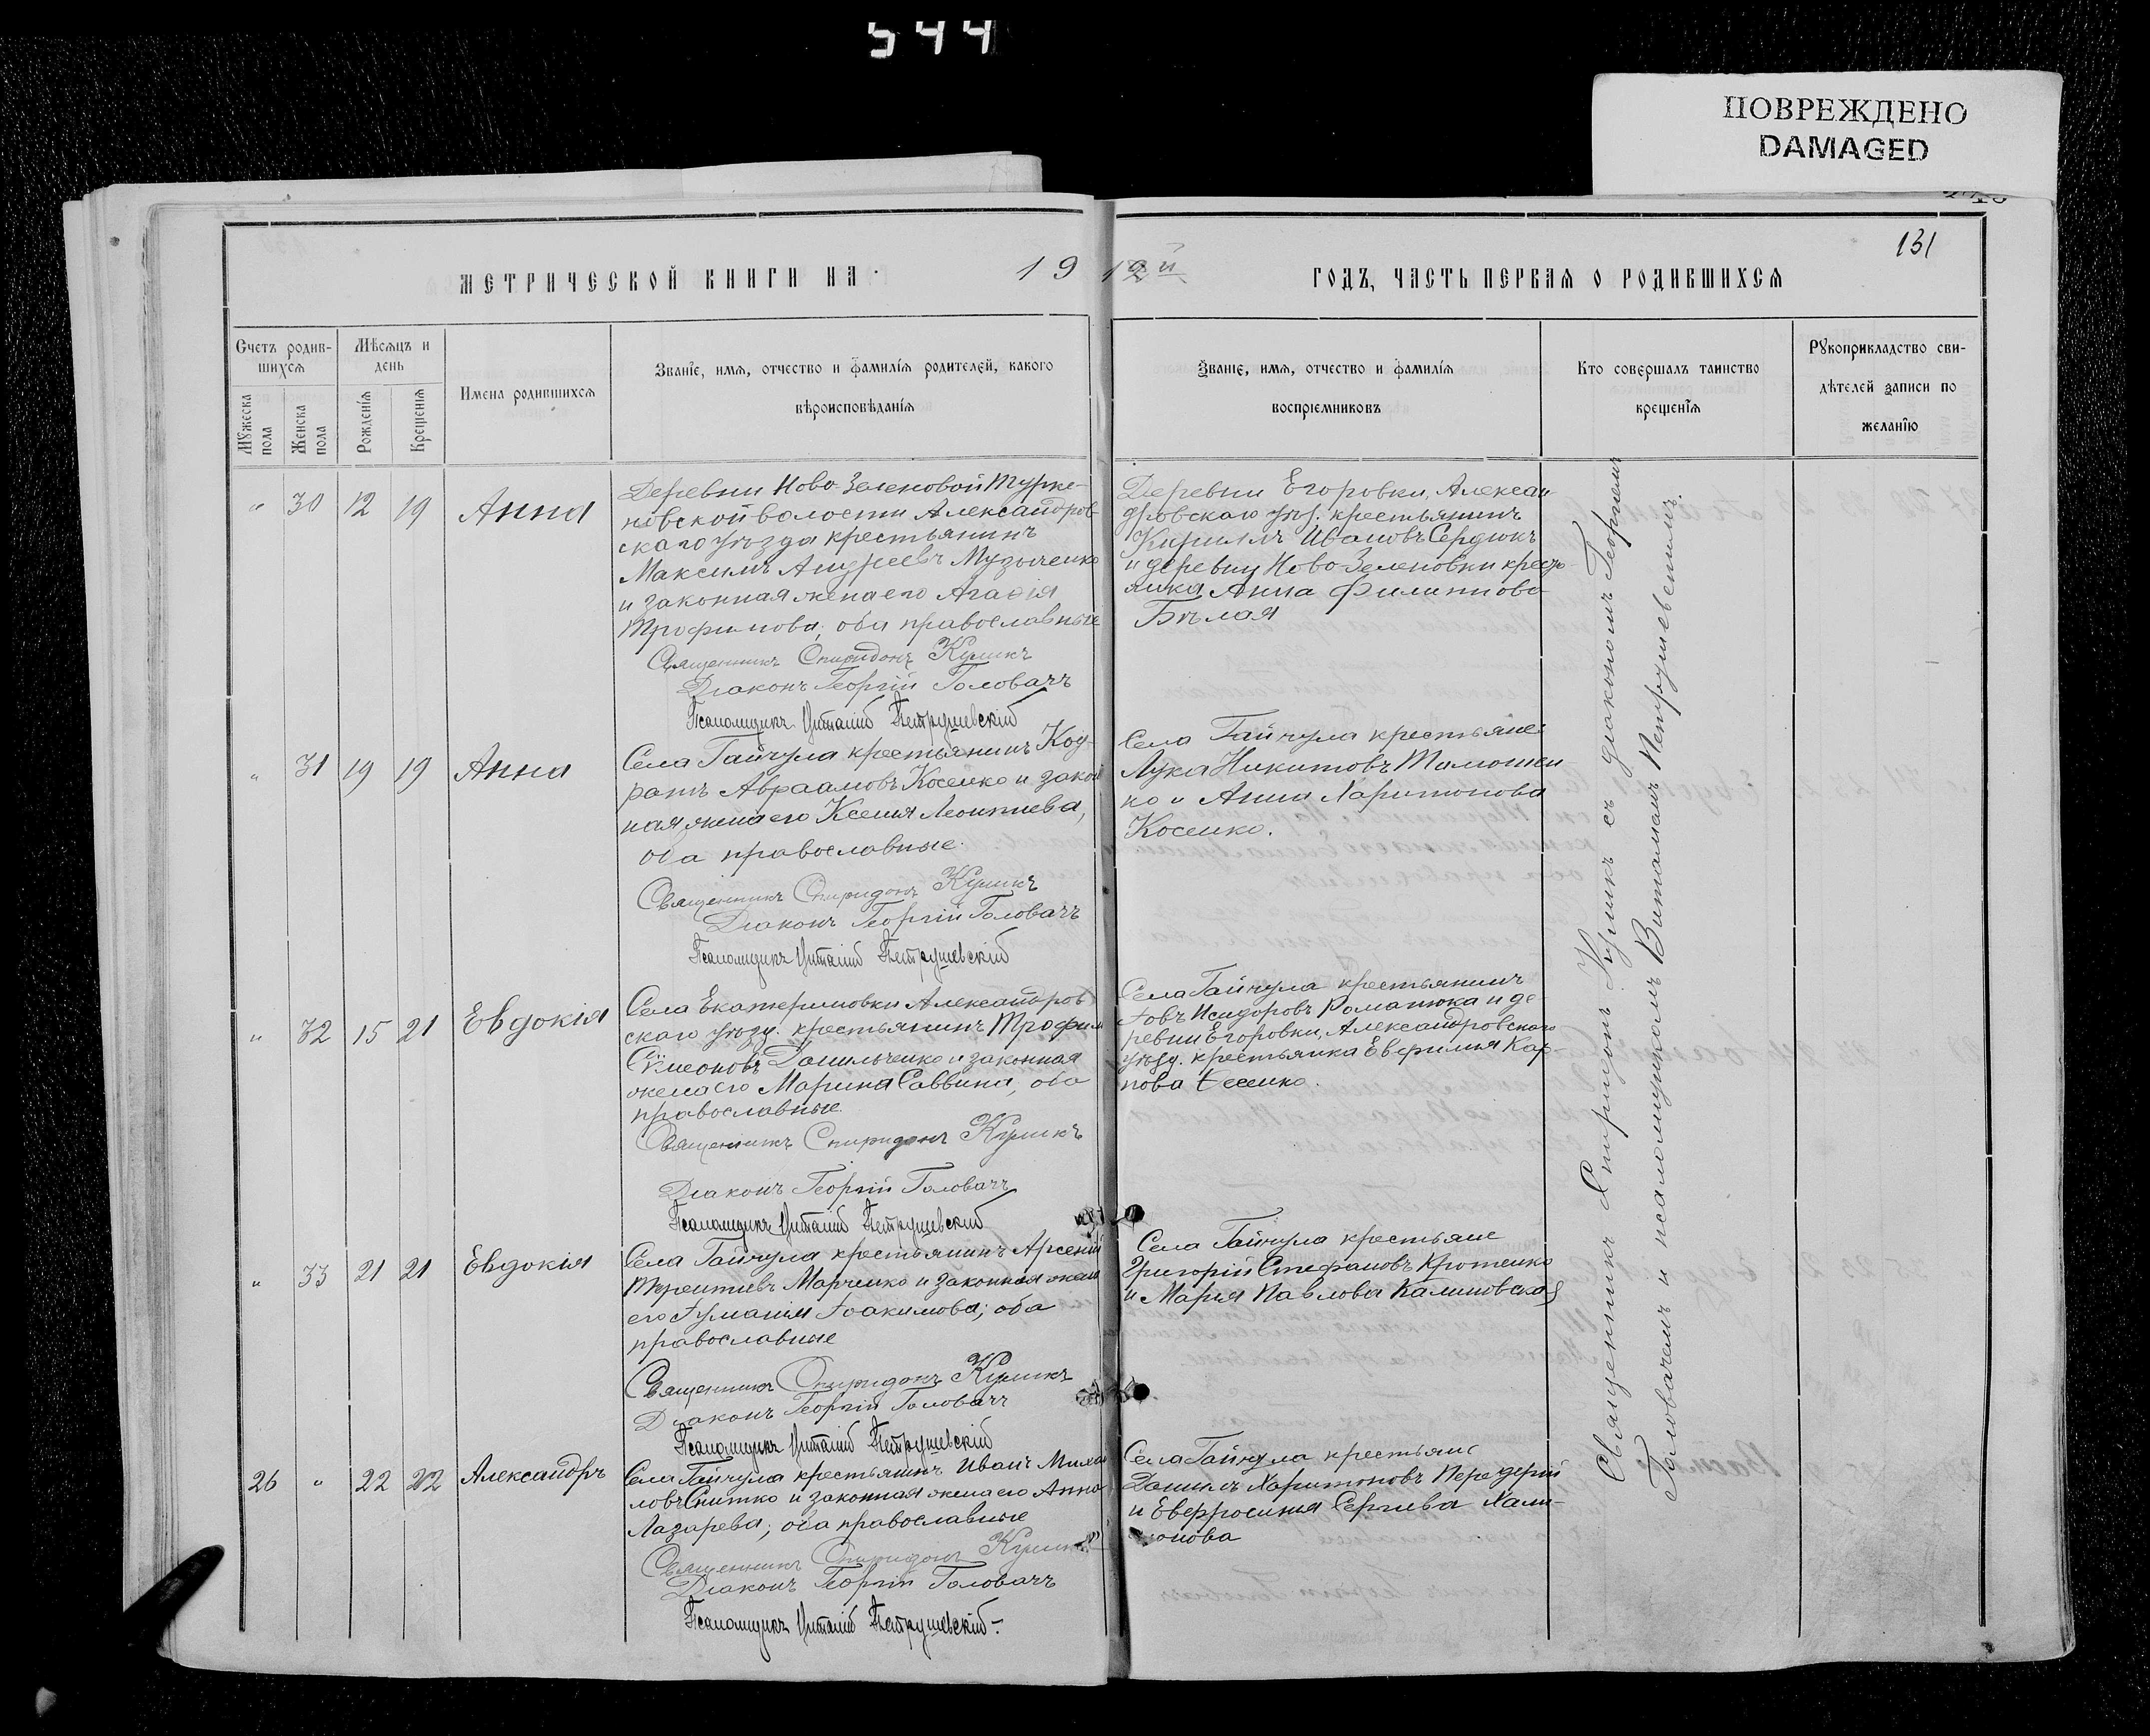 544
ПОВРЕЖДЕНО
DAMAGED
131
МЕТРИЧЕСКОЙ КНИГИ НА 1912й ГОДЪ, ЧАСТЬ ПЕРВАЯ О РОДИВШИХСЯ
Счетъ родив-
шихся
Мужеска пола
Женска пола
Мѣсяцъ и
день
Рожденія
Крещенія
Имена родившихся
Званіе, имя, отчество и фамилія родителей, какого
вѣроисповѣданія
Званіе, имя, отчество и фамилія
воспріемниковъ
Кто совершалъ таинство
крещенія
Рукоприкладство сви-
дѣтелей записи по
желанію
" 30 12 19 Анна
Деревни Ново-Зеленовой Турке-
новской волости Александров-
скаго уѣзда крестьянинъ
Максимъ Андреевъ Музыченко
и законная жена его Агафія
Трофимова, оба православные
Священникъ Спиридонъ Куликъ
Діаконъ Георгій Головачъ
Псаломщикъ Виталій Петрушевскій
Деревни Егоровки, Алексан-
дровскаго уѣз. крестьянинъ
Кириллъ Ивановъ Сердюкъ
и деревни Ново-Зеленовки кресть-
янка Анна Филиппова
Бѣлая
" 31 19 19 Анна
Села Гайчула крестьянинъ Код-
ратъ Авраамовъ Косенко и закон
ная жена его Ксенія Леонтіева,
оба православные.
Священникъ Спиридонъ Куликъ
Діаконъ Георгій Головачъ
Псаломщикъ Виталій Петрушевскій
Села Гайчула крестьяне:
Лука Никитовъ Тимошен-
ко и Анна Харитонова
Косенко.
" 32 15 21 Евдокія
Села Екатериновки Александров
скаго уѣзд. крестьянинъ Трофим
Сѵмеоновъ Данильченко и законная
жена его Марина Саввина, оба
православные.
Священникъ Спиридонъ Куликъ
Діаконъ Георгій Головачъ
Псаломщикъ Виталій Петрушевскій
Села Гайчула крестьянинъ
Іовъ Исидоровъ Романюка и де-
ревни Егоровки, Александровскаго
уѣзд. крестьянка Евфимія Кар-
пова
" 33 21 21 Евдокія
Села Гайчула крестьянинъ Арсеній
Терентіевъ Марченко и законная жена
его Іуліанія Іоакимова; оба
православные
Священникъ Спиридонъ Куликъ
Діаконъ Георгій Головачъ
Псаломщикъ Виталій Петрушевскій
Села Гайчула крестьяне
Григорій Стефановъ Кротенко
и Марія Павлова Калиновская
26 " 22 22 Александръ
Села Гайчула крестьянинъ Иванъ Михаи
ловъ Снитко и законная жена его Анна
Лазарева; оба православные
Священникъ Спиридонъ Куликъ
Діаконъ Георгій Головачъ
Псаломщикъ Виталій Петрушевскій
Села Гайчула крестьяне
Даніилъ Харитоновъ Передерій
и Евфросинія Сергіева
Священникъ Спиридонъ Куликъ съ діакономъ Георгіемъ
Головачемъ и псаломщикомъ Виталіемъ Петрушевскимъ.